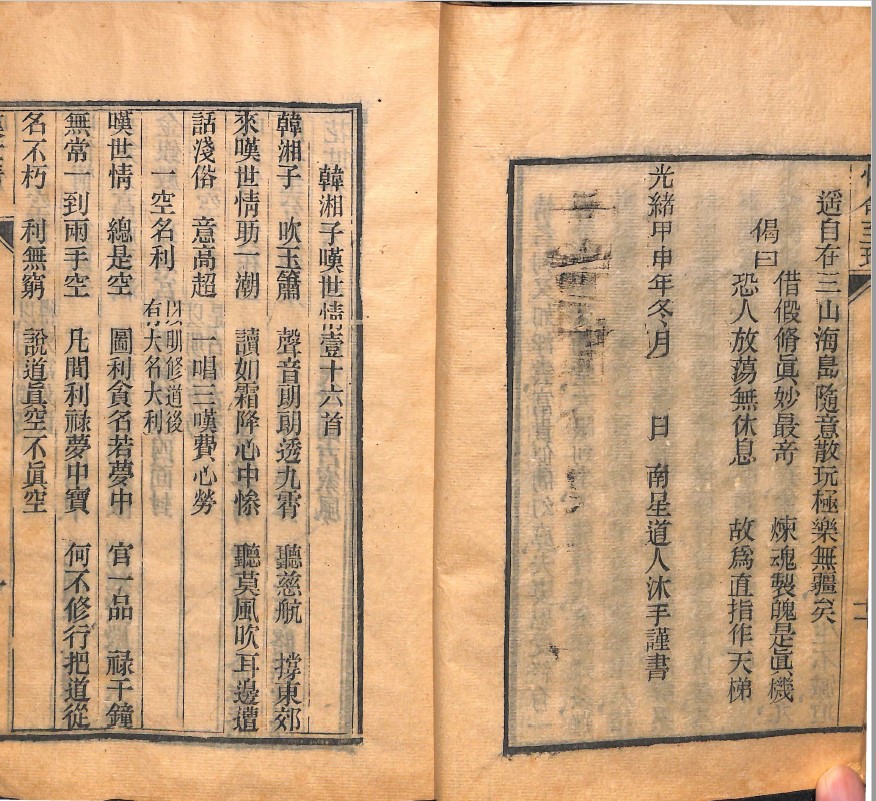 遥自在三山海島隨意散玩極樂無疆矣
偈曰
借假脩眞妙最竒 煉魂製魄是眞機
恐人放蕩無休息 故爲直指作天梯
光緒甲申年冬月 日 南星道人沐手謹書
韓湘子嘆世情壹十六首
韓湘子 吹玉簫 聲音朗朗透九霄 聽慈航 撐東郊
來嘆世情助一潮 讀如霜降心中慘 聽莫風吹耳邊遭
話淺俗 意高超 一唱三嘆費心勞
一空名利 以明修道後有大名大利
嘆世情 總是空 圖利貪名若夢中 官一品 祿千鐘
無常一到兩手空 凡間利祿夢中寶 何不修行把道從
名不朽 利無窮 說道眞空不眞空